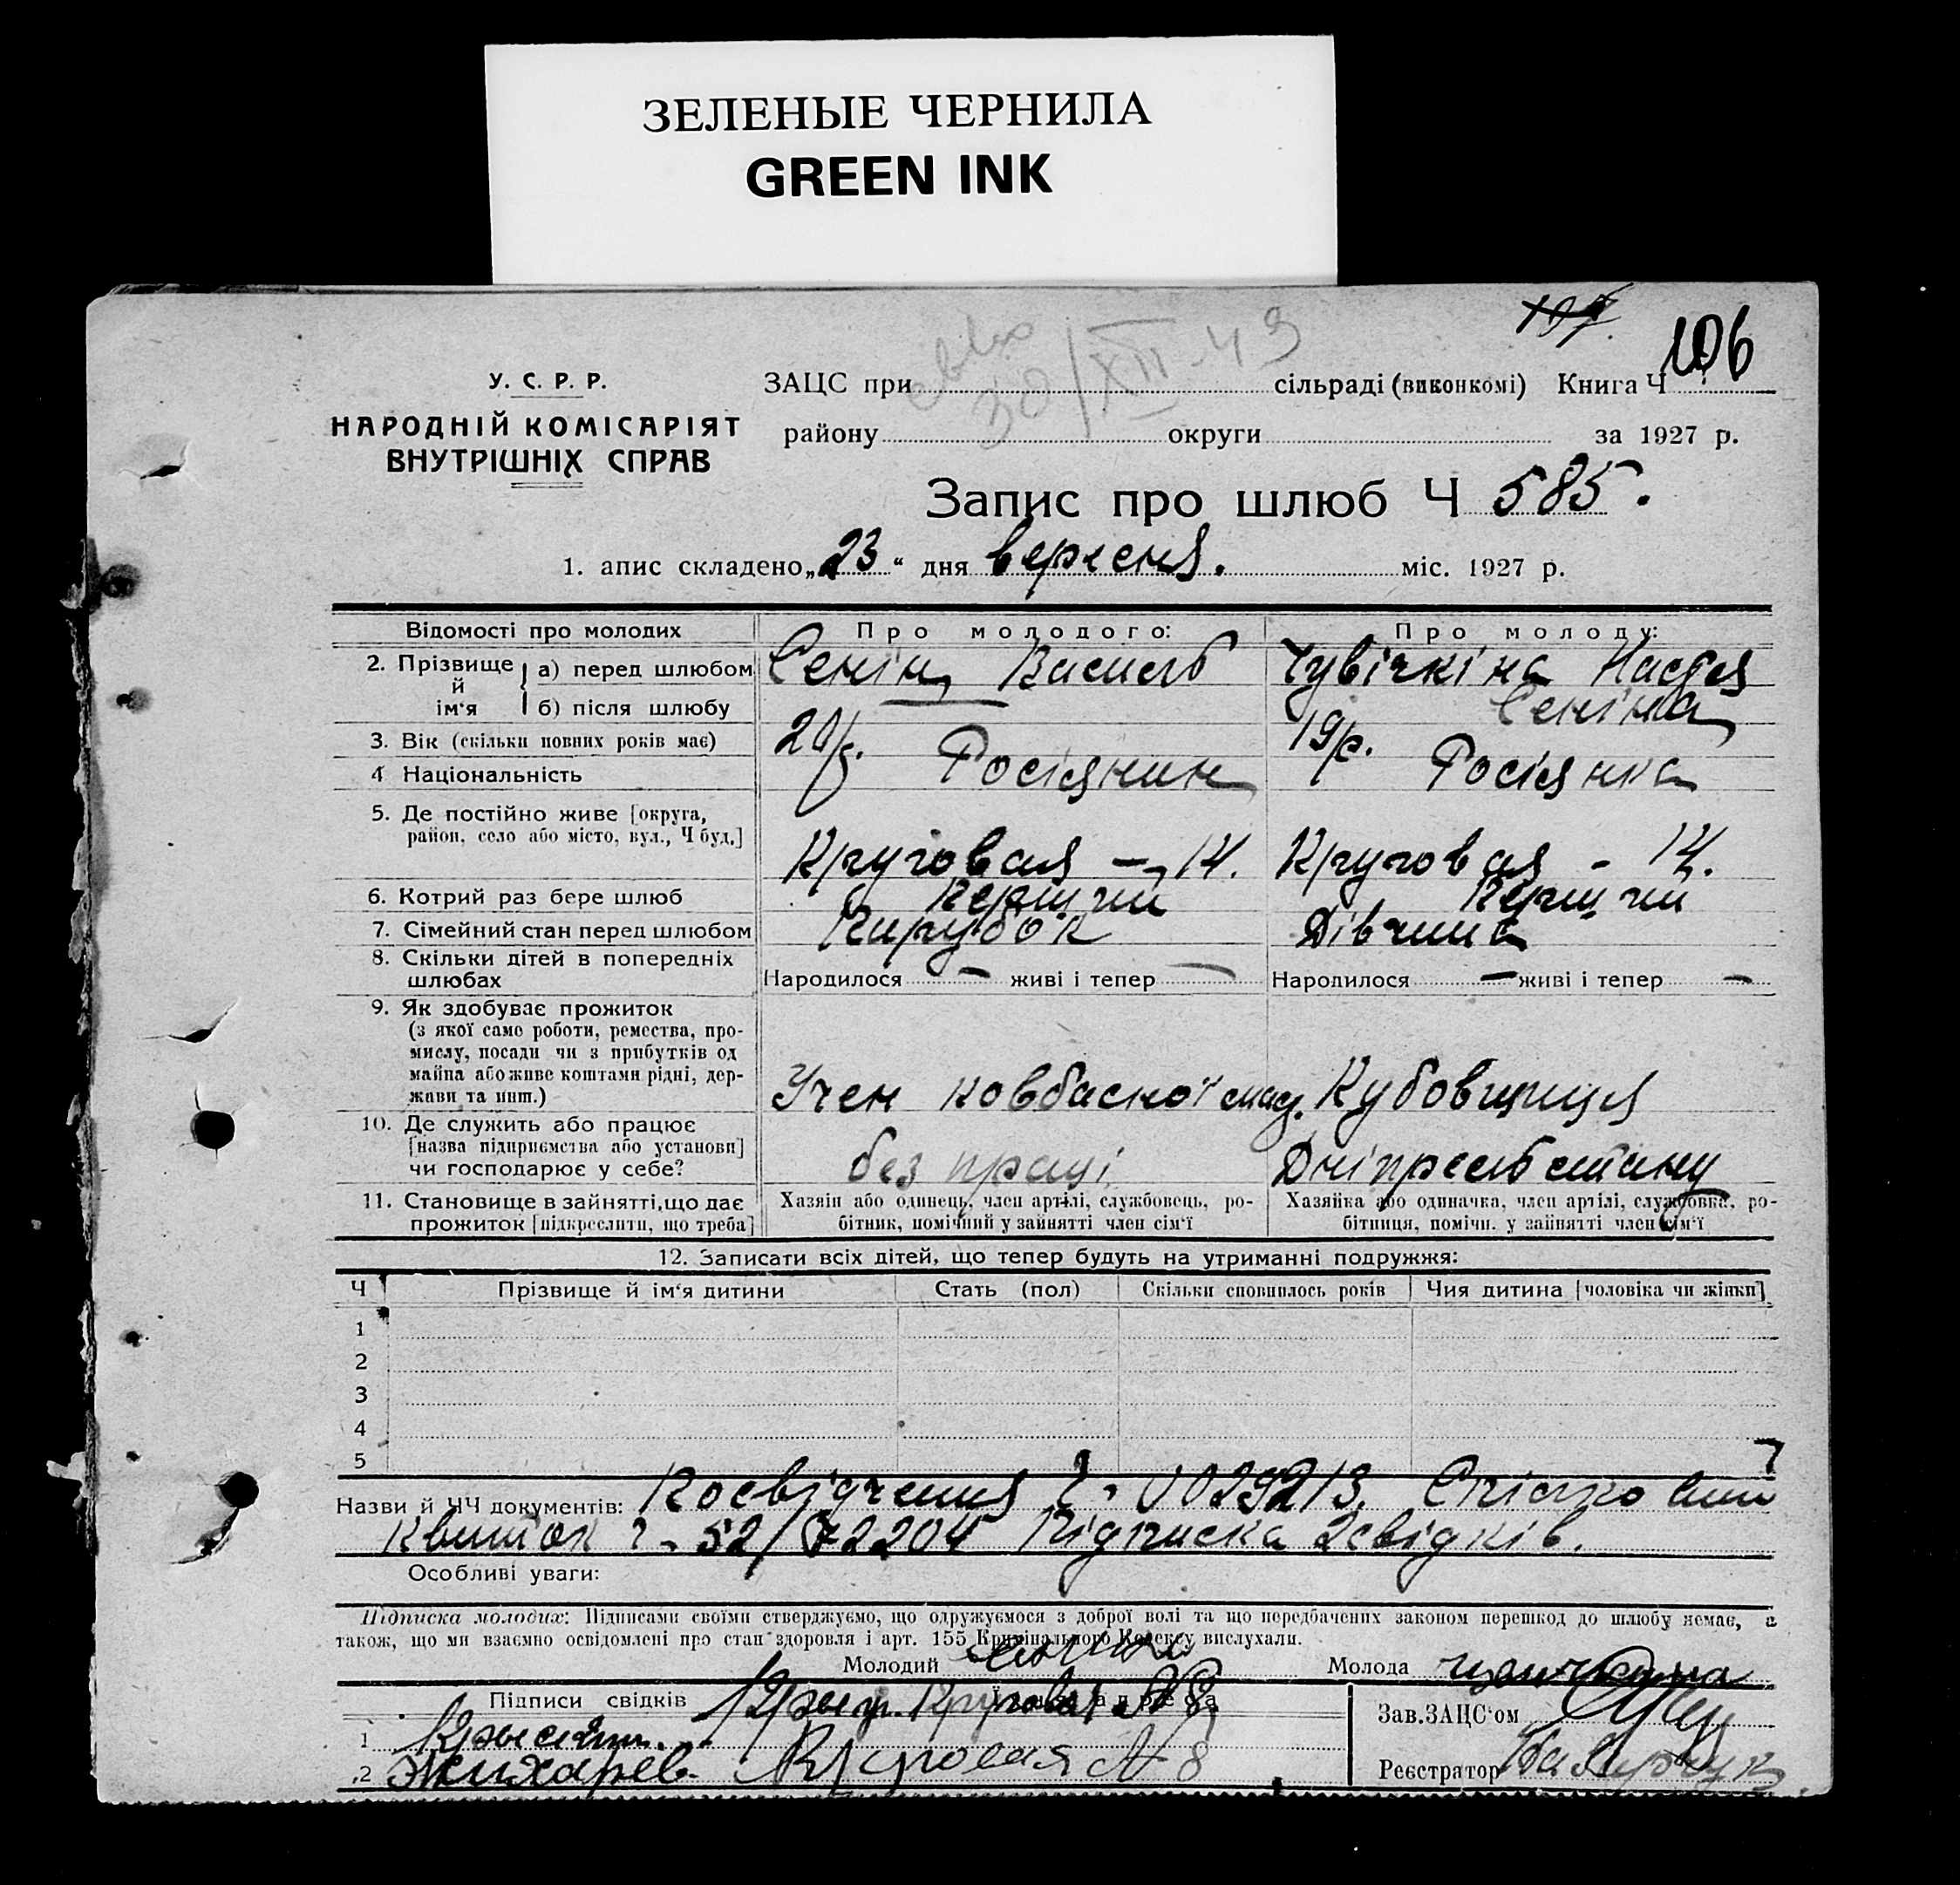 ЗЕЛЕНЫЕ ЧЕРНИЛА
GREEN INK
107.
106
30/XII-43
У. С. Р. Р.
НАРОДНІЙ КОМІСАРІЯТ
ВНУТРІШНІХ СПРАВ
ЗАЦС при сільраді (виконкомі) Книга Ч
району округи за 1927 р.
Запис про шлюб Ч 585.
1. апис складено „23“ дня вересня. міс. 1927 р.
Відомості про молодих Про молодого: Про молоду:
2. Прізвище й ім‘я а) перед шлюбом Сенін Василь Чувічкіна Настя
б) після шлюбу Сеніна
3. Вік (скільки повних років має) 20/р. 19/р.
4 Національність Росіянин Росіянка
5. Де постійно живе [округа,
район, село або місто, вул., Ч буд.] Круговая — 14. Круговая - 14.
6. Котрий раз бере шлюб Перший Перший
7. Сімейний стан перед шлюбом Парубок Дівчина
8. Скільки дітей в попередніх
шлюбах Народилося — живі і тепер — Народилося — живі і тепер —
9. Як здобуває прожиток
(з якої само роботи, ремества, про-
мислу, посади чи з прибутків од
майна або живе коштами рідні, дер-
жави та инш.) Учен ковбасної Кубовщиця
10. Де служить або працює
[назва підприємства або установи]
чи господарює у себе? без праці
11. Становище в зайнятті, що дає
прожиток [підкреслити, що треба]
Хазяїн або одинець, член артілі, службовець, ро-
бітник, помічний у зайнятті член сім‘ї
Хазяйка або одиначка, член артілі, службовка, ро-
бітниця, помічн. у зайнятті член сім‘ї
12. Записати всіх дітей, що тепер будуть на утриманні подружжя:
Ч Прізвище й ім‘я дитини Стать (пол) Скільки сповнилось років Чия дитина [чоловіка чи жінки]
1
2
3
4
5
Назви й ЧЧ документів: Посвідчення Ч.
квиток ч. 52/72204 Підписка 2 свідків.
Особливі уваги:
Підписка молодих: Підписами своїми стверджуємо, що одружуємося з доброї волі та що передбачених законом перешкод до шлюбу немає, а
також, що ми взаємно освідомлені про стан здоровля і арт. 155 Кримінального Кодексу вислухали.
Молодий Молода
Підписи свідків Їхня адреса
1
2 Жихарев Круговая № 8
Зав. ЗАЦС‘ом
Реєстратор